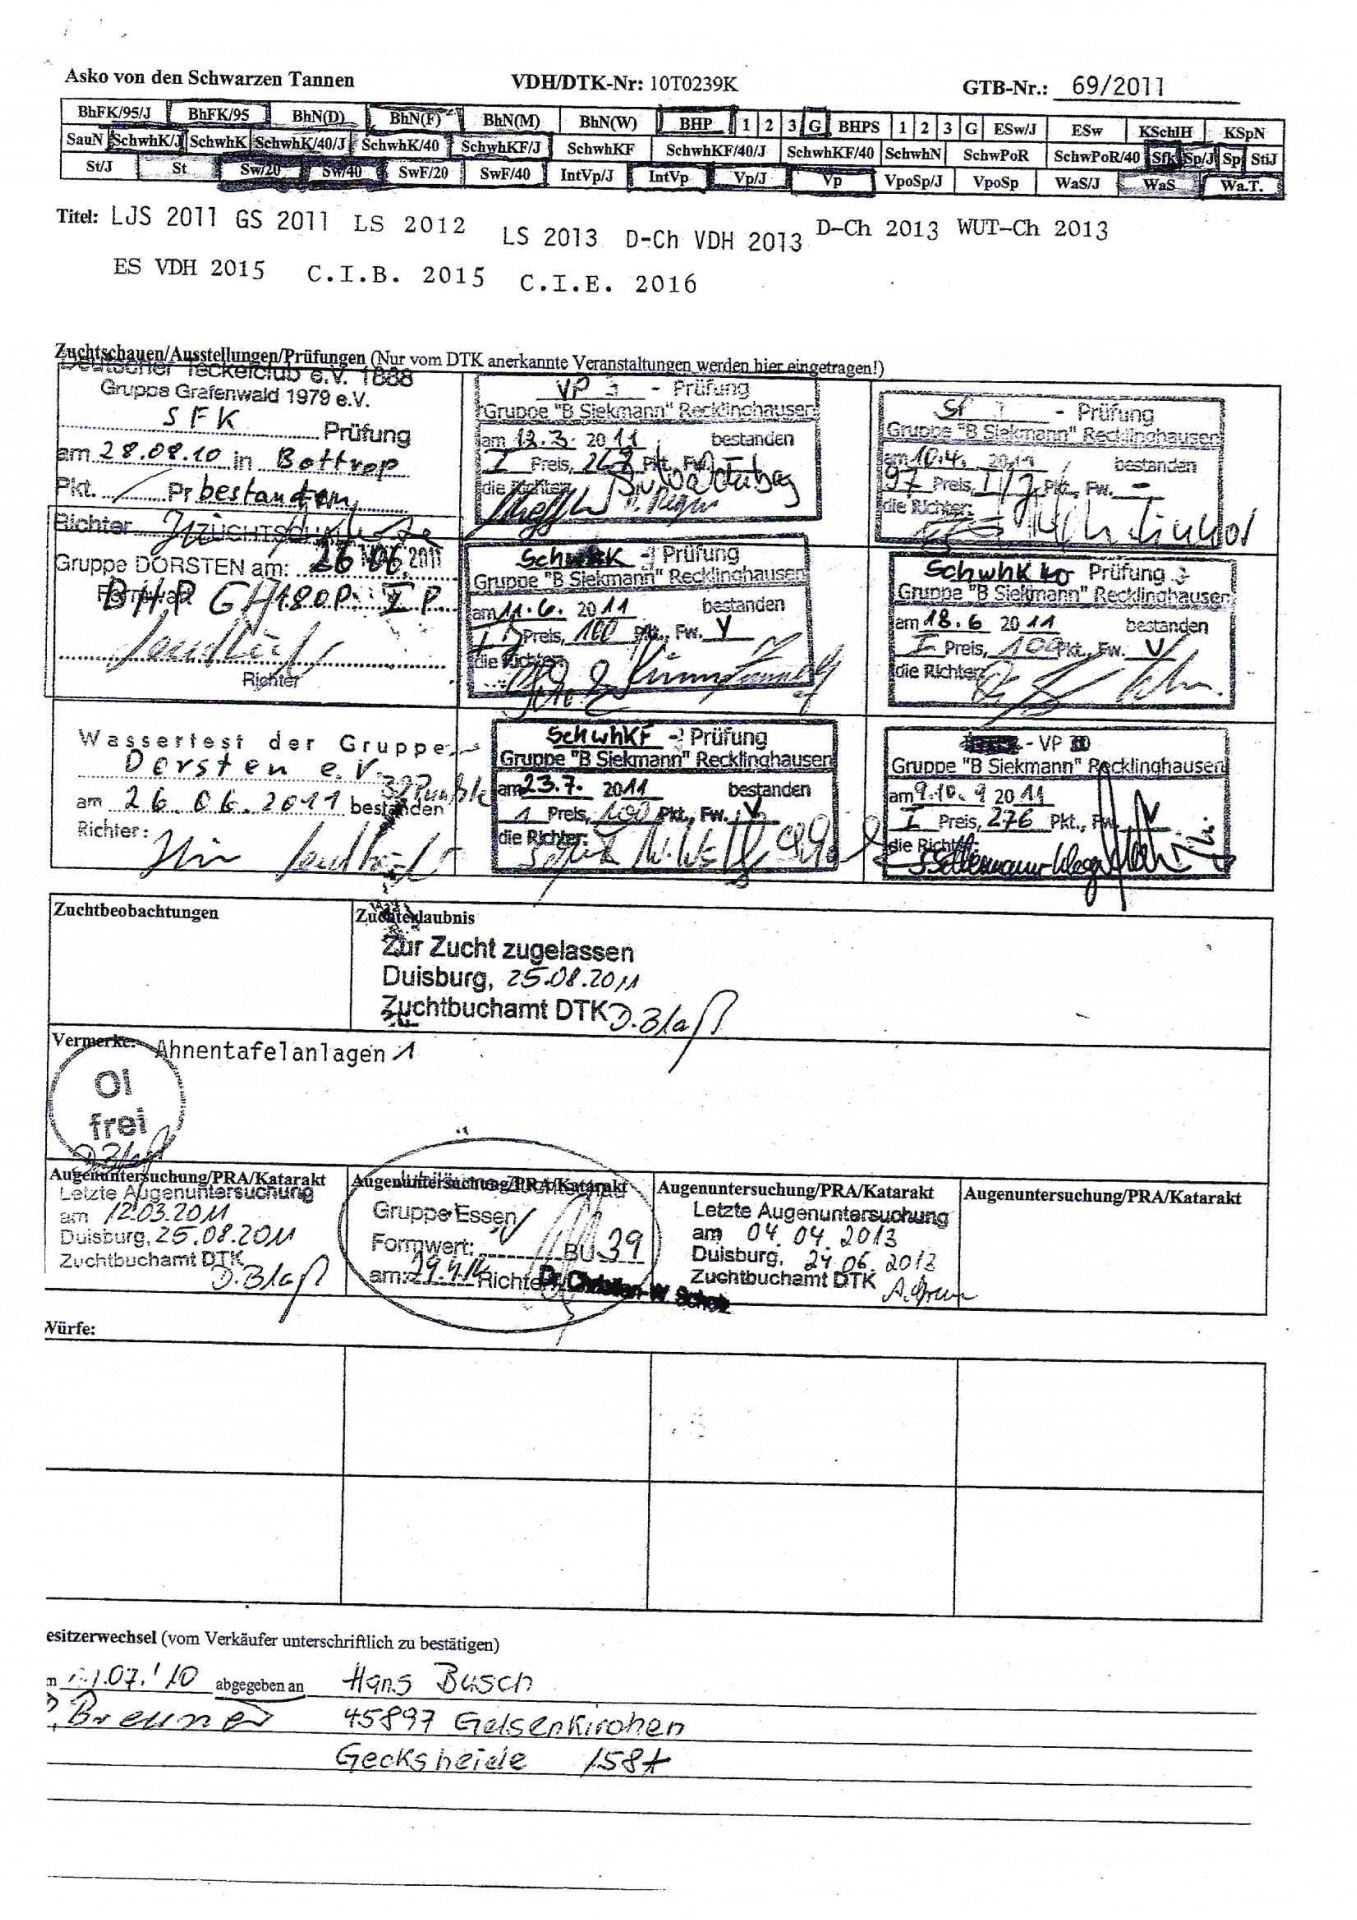 Asko von den Schwarzen Tannen VDH/DTK-Nr: 10T0239K GTB-Nr.: 69/2011
BhFK/95/J BhFK/95 BhN(D) BhN(F) BhN(M) BhN(W) BHP 1 2 3 G BHPS 1 2 3 G ESw/J ESw KSchlH KSpN
SauN SchwhK/J SchwhK SchwhK/40/J SchwhK/40 SchwhKF/J SchwhKF SchwhKF/40/J SchwhKF/40 SchwhN SchwPoR SchwPoR/40 Sfk Sp/J Sp StiJ
St/J St Sw/20 Sw/40 SwF/20 SwF/40 IntVp/J IntVp Vp/J Vp VpoSp/J VpoSp WaS/J WaS Wa.T.
Titel: LJS 2011 GS 2011 LS 2012 LS 2013 D-Ch VDH 2013 D-Ch 2013 WUT-Ch 2013
ES VDH 2015 C.I.B. 2015 C.I.E. 2016
Zuchtschauen/Ausstellungen/Prüfungen (Nur vom DTK anerkannte Veranstaltungen werden hier eingetragen!)
Deutscher Teckelclub e.V. 1888
Gruppe Grafenwald 1979 e.V.
SFK Prüfung
am 28.08.10 in Bottrop
Pkt. / Pr bestanden
Richter
VP - Prüfung
Gruppe "B Siekmann" Recklinghausen
am 13.3. 2011 bestanden
I Preis, Pkt., Fw.
die Richter:
- Prüfung
Gruppe "B Siekmann" Recklinghausen
am 10.4. 2011 bestanden
97 Preis, I/J Pkt., Fw. -
die Richter:
ZUCHTSCHAU
Gruppe DORSTEN am: 26 06. 2011
Formwert
BHP G 180P. I P
Richter
SchwhK - Prüfung
Gruppe "B Siekmann" Recklinghausen
am 11.6. 2011 bestanden
I J Preis, 100 Pkt., Fw. V
die Richter:
SchwhK 40 Prüfung
Gruppe "B Siekmann" Recklinghausen
am 18.6 2011 bestanden
I Preis, 100 Pkt., Fw. V
die Richter:
Wassertest der Gruppe
Dorsten e.V. 32 Punkte
am 26.06.2011 bestanden
Richter:
SchwhKF - Prüfung
Gruppe "B Siekmann" Recklinghausen
am 23.7. 2011 bestanden
1 Preis, 100 Pkt., Fw. V
die Richter:
- VP
Gruppe "B Siekmann" Recklinghausen
am 9.10. 2011
I Preis, 276 Pkt., Fw. V
die Richter:
Zuchtbeobachtungen Zuchterlaubnis
Zur Zucht zugelassen
Duisburg, 25.08.2011
Zuchtbuchamt DTK D.Blaß
Vermerke: Ahnentafelanlagen 1
OI
frei
D.Blaß
Augenuntersuchung/PRA/Katarakt Augenuntersuchung/PRA/Katarakt Augenuntersuchung/PRA/Katarakt Augenuntersuchung/PRA/Katarakt
Letzte Augenuntersuchung
am 12.03.2011
Duisburg, 25.08.2011
Zuchtbuchamt DTK
D.Blaß
Gruppe Essen
Formwert: V BU 39
am: 29.4.12 Richter Dr. Christian-W Scholz
Letzte Augenuntersuchung
am 04.04.2013
Duisburg, 24.06.2013
Zuchtbuchamt DTK
Würfe:
esitzerwechsel (vom Verkäufer unterschriftlich zu bestätigen)
.07.'10 abgegeben an Hans Busch
45897 Gelsenkirchen
Gecksheide 158